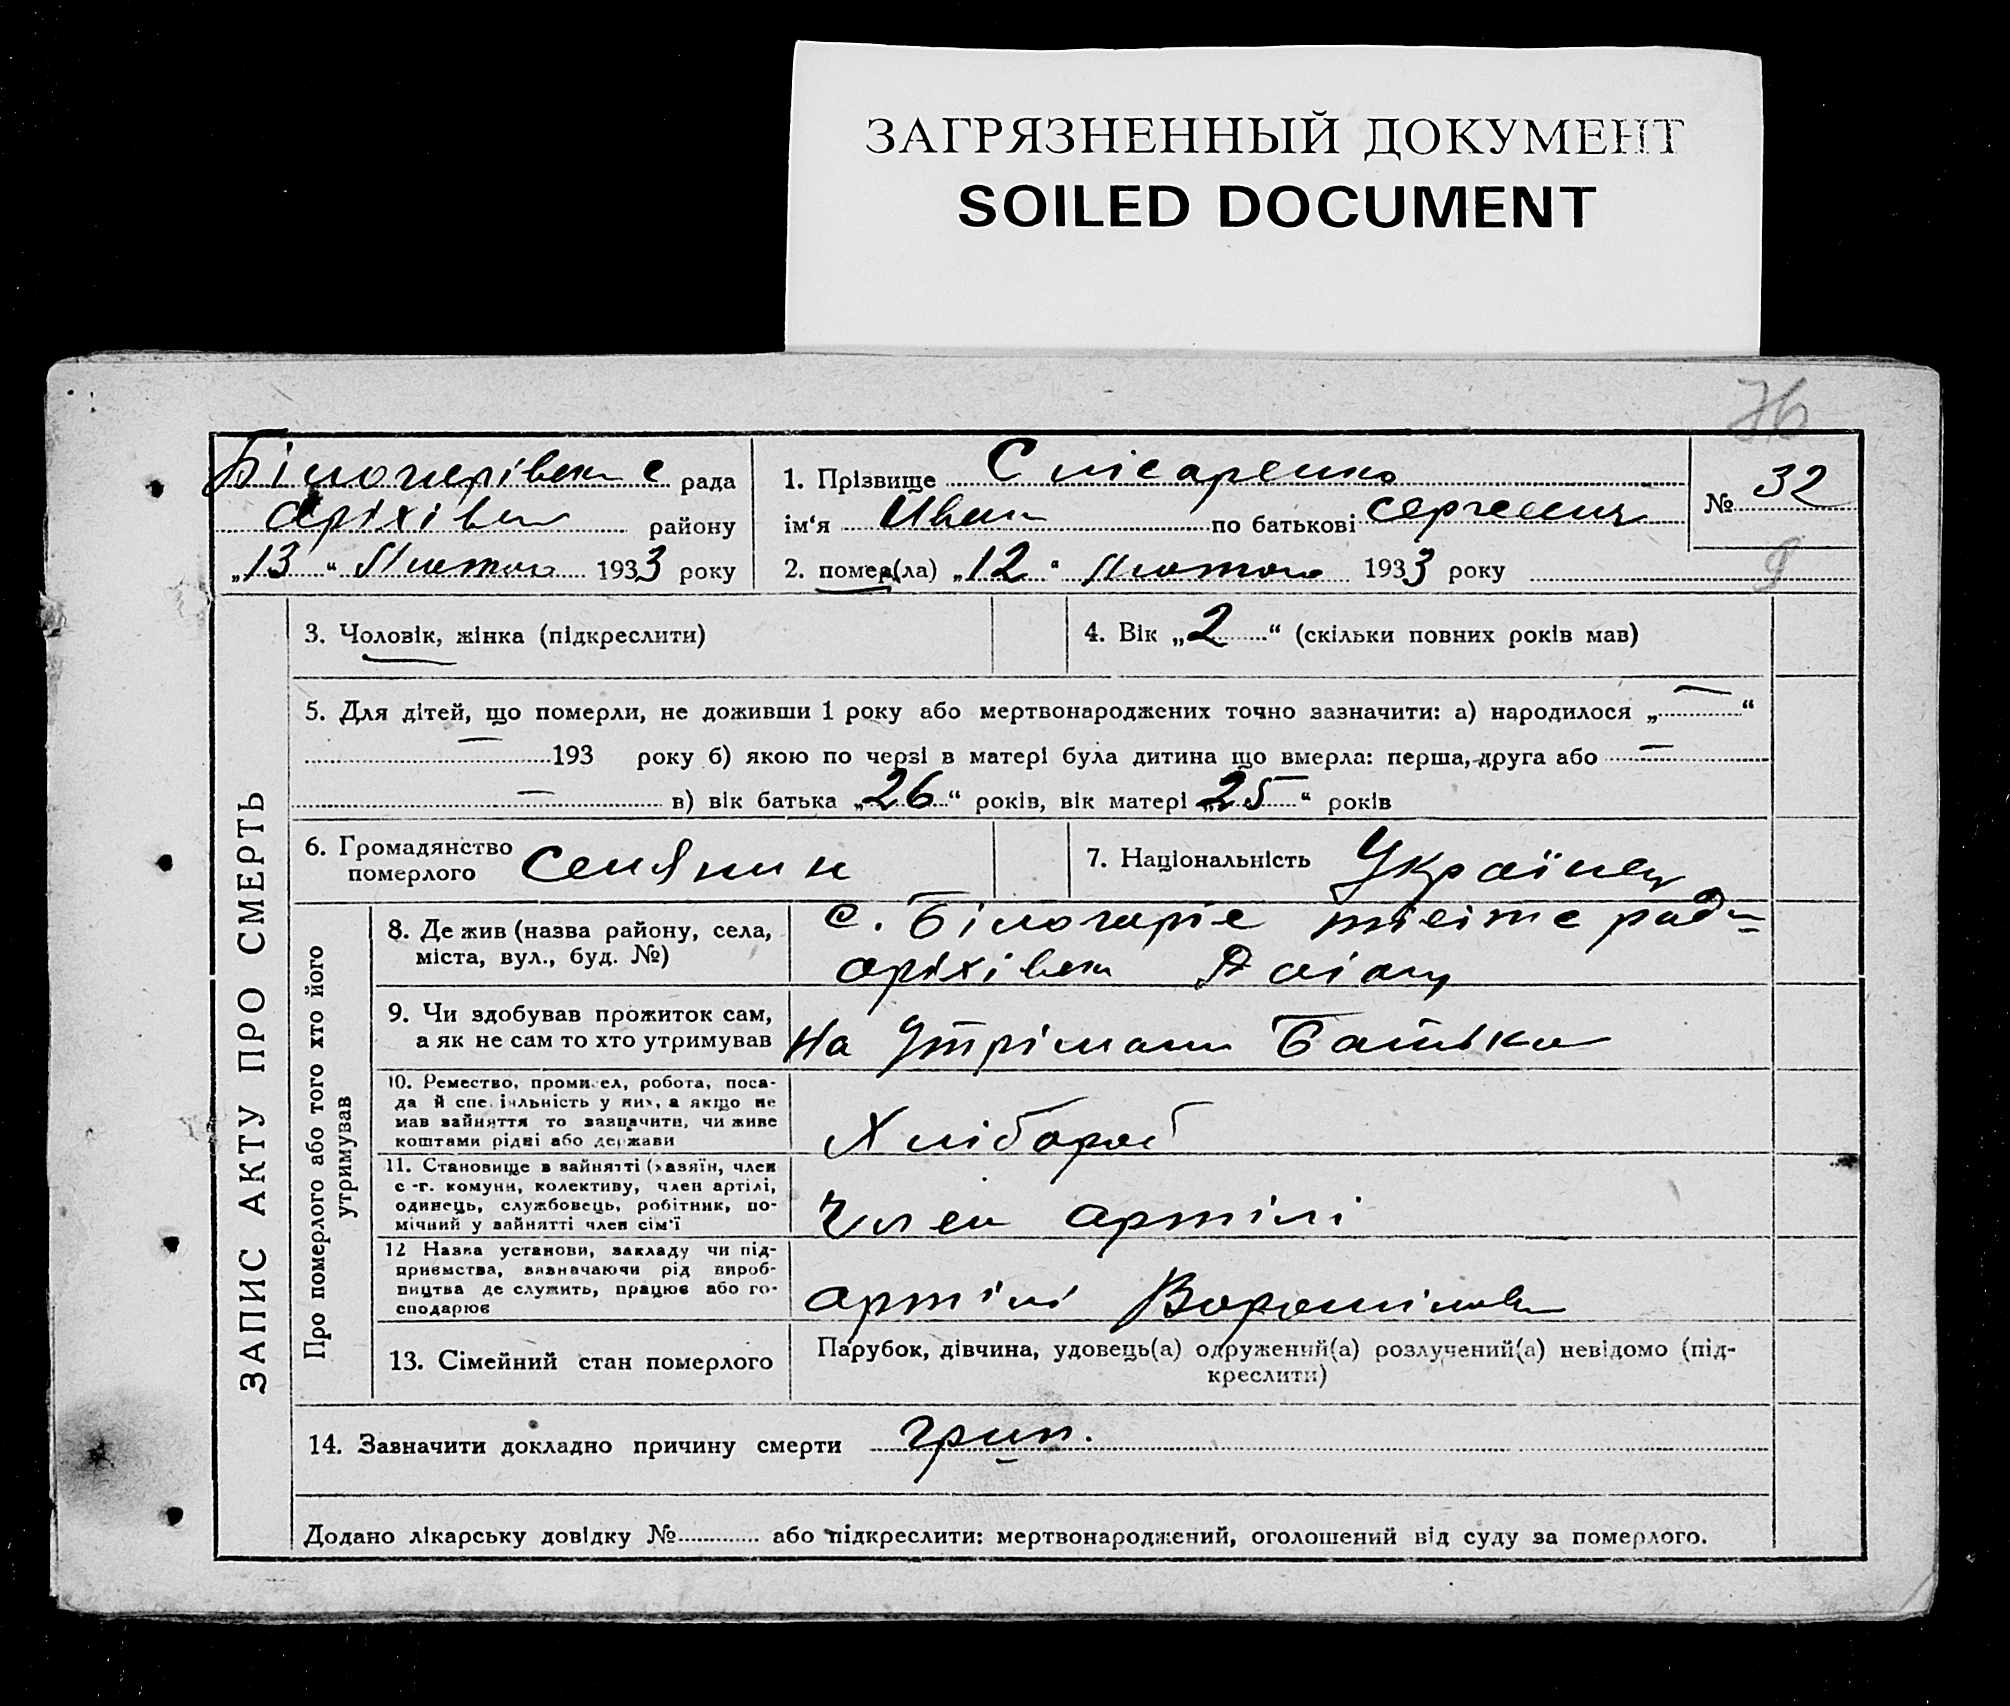 ЗАГРЯЗНЕННЫЙ ДОКУМЕНТ
SOILED DOCUMENT
76
Білочерівськ С рада
Оріхівськ району
„13“ Лютого 1933 року
1. Прізвище Слісаренко
ім‘я Иван по батькові Сергеевич
2. помер(ла) „12“ Лютого 1933 року
№ 32
ЗАПИС АКТУ ПРО СМЕРТЬ
3. Чоловік, жінка (підкреслити)
4. Вік „2“ (скільки повних років мав)
5. Для дітей, що померли, не доживши 1 року або мертвонароджених точно зазначити: а) народилося „—“
— 193 року б) якою по черзі в матері була дитина що вмерла: перша, друга або —
— в) вік батька „26“ років, вік матері „25“ років
6. Громадянство
померлого Селянин
7. Національність Українец
Про померлого або того хто його
утримував
8. Де жив (назва району, села,
міста, вул., буд. №)
с. Білочаріє
Оріхівськ Району
9. Чи здобував прожиток сам,
а як не сам то хто утримував
На Утрімани Батька
10. Ремество, промисел, робота, поса-
да й спеціяльність у них, а якщо не
мав зайняття то зазначити, чи живе
коштами рідні або держави
Хлібороб
11. Становище в зайнятті (хазяїн, член
с.-г. комуни, колективу, член артілі,
одинець, службовець, робітник, по-
мічний у зайнятті член сім'ї
Член артілі
12 Назва установи, закладу чи під-
приємства, визначаючи рід вироб-
ництва де служить, працює або го-
сподарює
артілі Ворошілова
13. Сімейний стан померлого
Парубок, дівчина, удовець(а) одружений(а) розлучений(а) невідомо (під-
креслити)
14. Зазначити докладно причину смерти грип.
Додано лікарську довідку № або підкреслити: мертвонароджений, оголошений від суду за померлого.